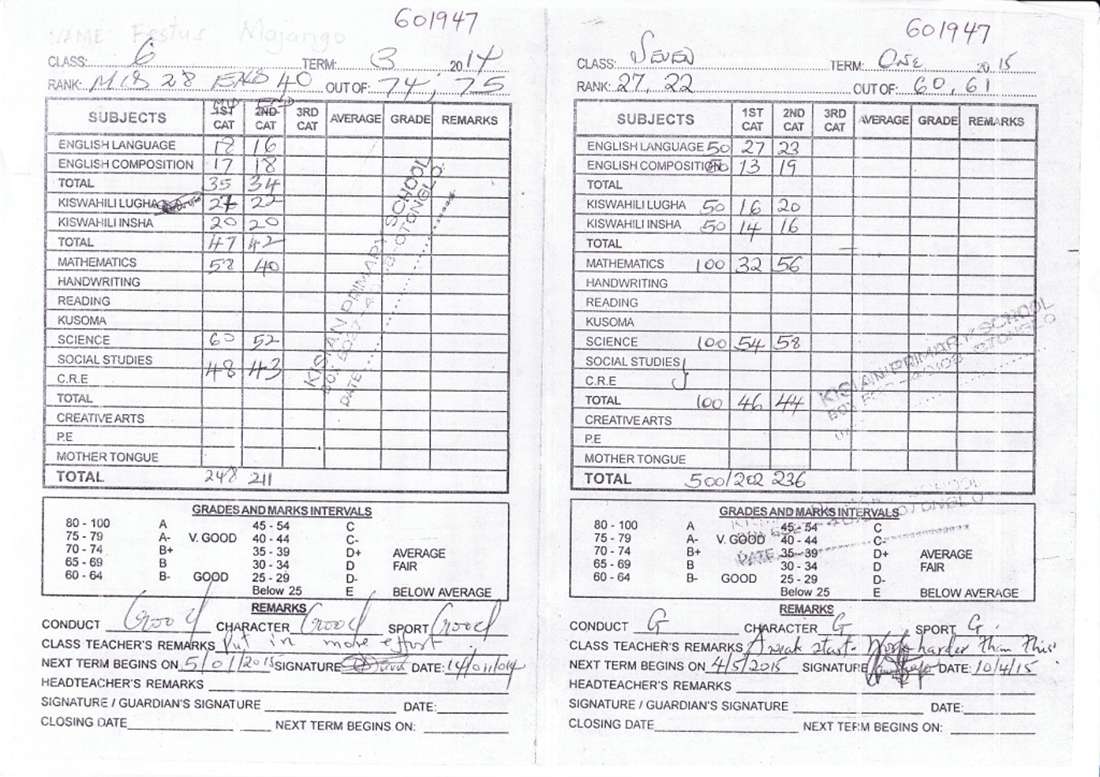 601947
NAME Festus Majango
CLASS: 6 TERM: 3 2014
RANK: MID 28 END 40 OUT OF: 74, 75
SUBJECTS 1ST CAT 2ND CAT 3RD CAT AVERAGE GRADE REMARKS
ENGLISH LANGUAGE 18 16
ENGLISH COMPOSITION 17 18
TOTAL 35 34
KISWAHILI LUGHA 27 22
KISWAHILI INSHA 20 20
TOTAL 47 42
MATHEMATICS 58 40
HANDWRITING
READING
KUSOMA
SCIENCE 60 52
SOCIAL STUDIES
C.R.E 48 43
TOTAL
CREATIVE ARTS
P.E
MOTHER TONGUE
TOTAL 248 211
KISIAN PRIMARY SCHOOL
DATE
GRADES AND MARKS INTERVALS
80 - 100 A 45 - 54 C
75 - 79 A- V. GOOD 40 - 44 C-
70 - 74 B+ 35 - 39 D+ AVERAGE
65 - 69 B 30 - 34 D FAIR
60 - 64 B- GOOD 25 - 29 D-
Below 25 E BELOW AVERAGE
REMARKS
CONDUCT Good CHARACTER Good SPORT Good
CLASS TEACHER'S REMARKS Put in more effort
NEXT TERM BEGINS ON 5/01/2015 SIGNATURE DATE:
HEADTEACHER'S REMARKS
SIGNATURE / GUARDIAN'S SIGNATURE DATE:
CLOSING DATE NEXT TERM BEGINS ON:
601947
CLASS: TERM: ONE 2015
RANK: 27, 22 OUT OF: 60, 61
SUBJECTS 1ST CAT 2ND CAT 3RD CAT AVERAGE GRADE REMARKS
ENGLISH LANGUAGE 50 27 23
ENGLISH COMPOSITION 13 19
TOTAL
KISWAHILI LUGHA 50 16 20
KISWAHILI INSHA 50 14 16
TOTAL
MATHEMATICS 100 32 56
HANDWRITING
READING
KUSOMA
SCIENCE 100 54 58
SOCIAL STUDIES
C.R.E
TOTAL 100 46 44
CREATIVE ARTS
P.E
MOTHER TONGUE
TOTAL 500/202 236
KISIAN PRIMARY SCHOOL
GRADES AND MARKS INTERVALS
80 - 100 A 45 - 54 C
75 - 79 A- V. GOOD 40 - 44 C-
70 - 74 B+ 35 - 39 D+ AVERAGE
65 - 69 B 30 - 34 D FAIR
60 - 64 B- GOOD 25 - 29 D-
Below 25 E BELOW AVERAGE
DATE
REMARKS
CONDUCT G CHARACTER G SPORT G.
CLASS TEACHER'S REMARKS A weak start. Work harder than this
NEXT TERM BEGINS ON 4/5/2015 SIGNATURE DATE: 10/4/15
HEADTEACHER'S REMARKS
SIGNATURE / GUARDIAN'S SIGNATURE DATE:
CLOSING DATE NEXT TERM BEGINS ON: